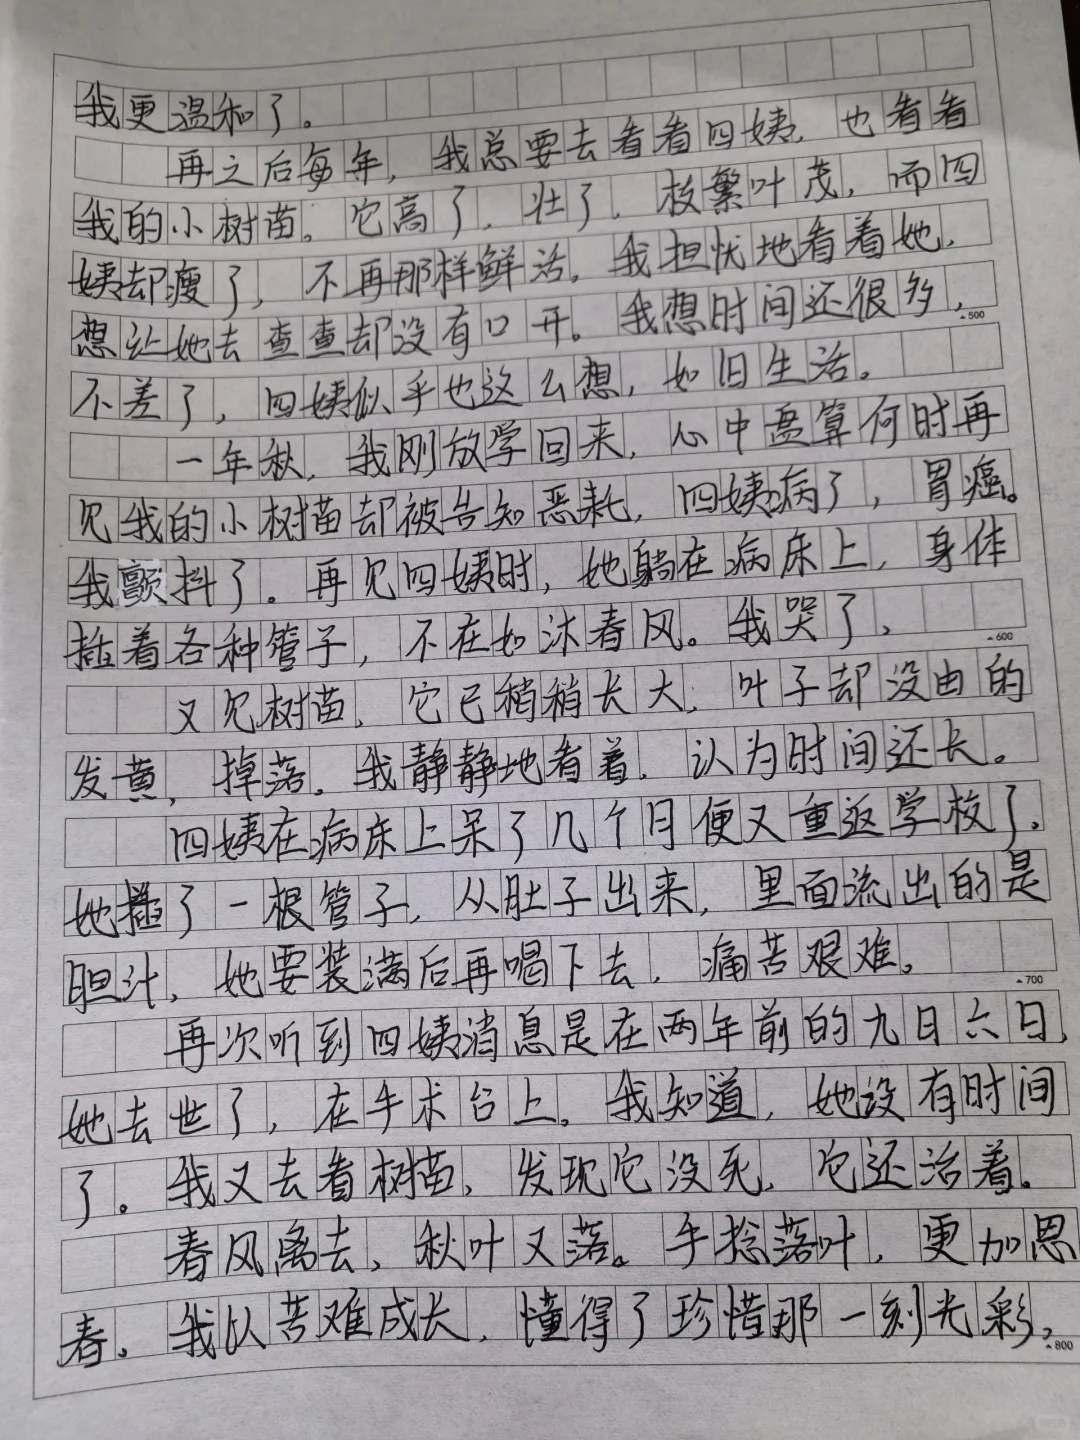 我更温和了。
再之后每年，我总要去看看四姨，也看看
我的小树苗。它高了，壮了，枝繁叶茂，而四
姨却瘦了，不再那样鲜活。我担忧地看着她，
想让她去查查却没有口开。我想时间还很多，
500
不差了，四姨似乎也这么想，如旧生活。
一年秋，我刚放学回来，心中盘算何时再
见我的小树苗却被告知恶耗，四姨病了，胃癌。
我颤抖了。再见四姨时，她躺在病床上，身体
插着各种管子，不在如沐春风。我哭了，
600
又见树苗，它已稍稍长大，叶子却没由的
发黄，掉落。我静静地看着，认为时间还长。
四姨在病床上呆了几个月便又重返学校了。
她插了一根管子，从肚子出来，里面流出的是
胆汁，她要装满后再喝下去，痛苦艰难。
700
再次听到四姨消息是在两年前的九日六日，
她去世了，在手术台上。我知道，她没有时间
了。我又去看树苗，发现它没死，它还活着。
春风离去，秋叶又落。手捻落叶，更加思
春。我以苦难成长，懂得了珍惜那一刻光彩，
800